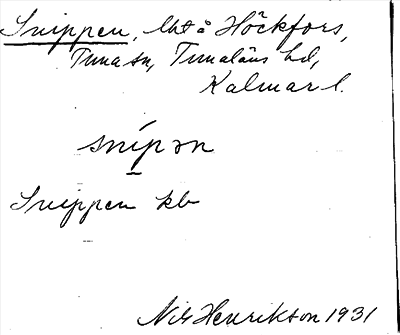 Snippen, lht å Höckfors,
Tuna sn, Tunaläns hd,
Kalmar l.
snípən
Snippen kb
Nils Henrikson 1931